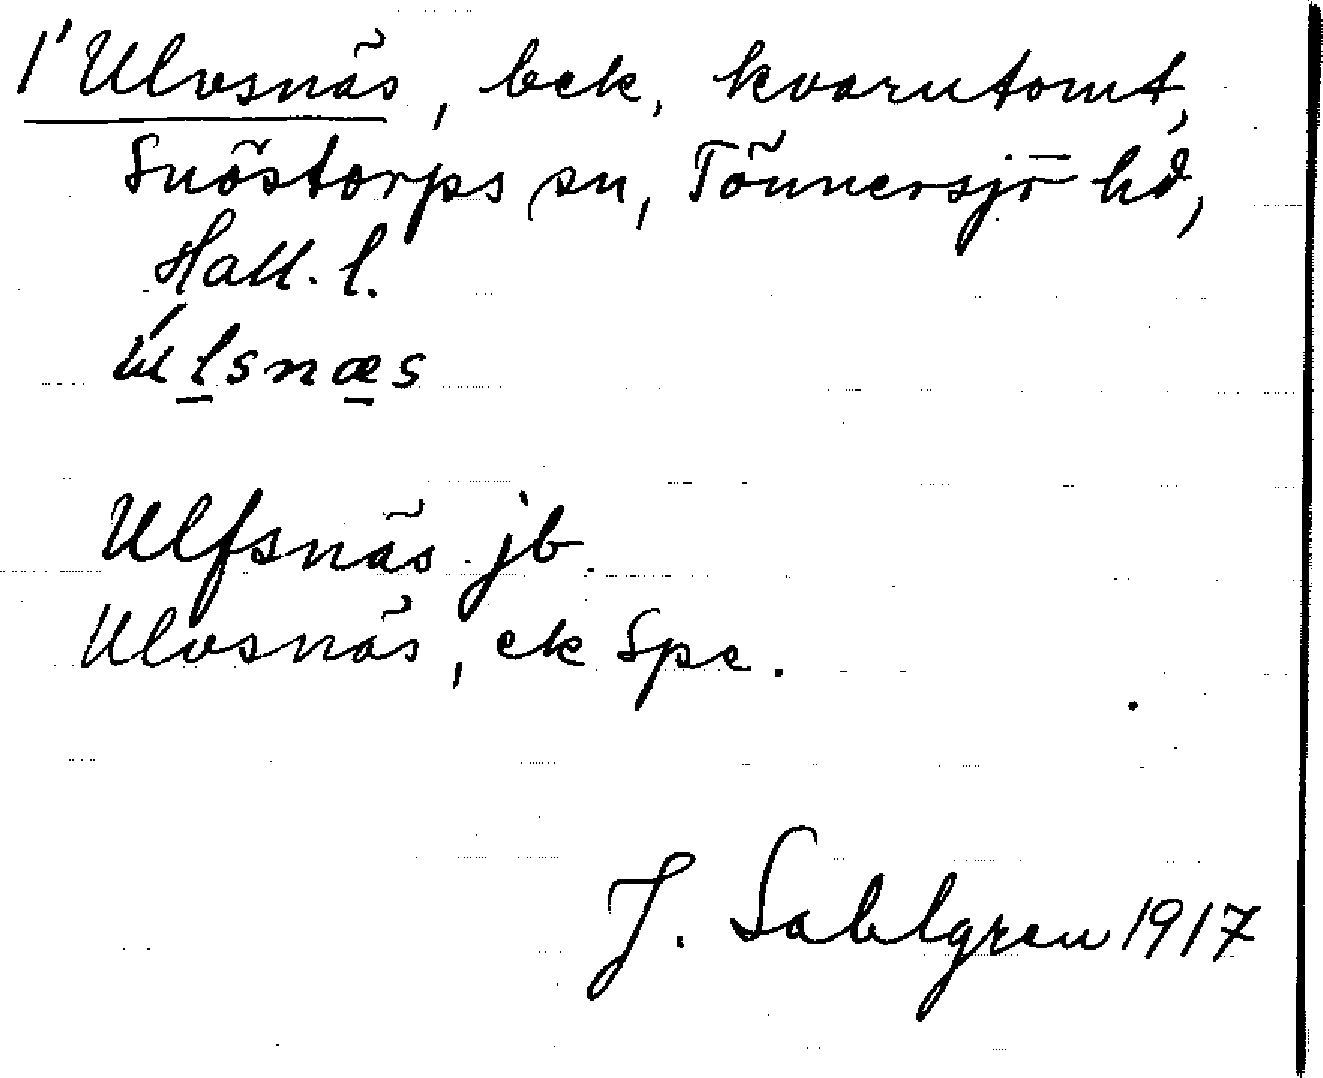 1' Ulvsnäs, bek, kvarntomt,
Snöstorps sn, Tönnersjö hd,
Hall. l.
úlsnæs
Ulfsnäs jb.
Ulvsnäs, ek Spe.
J. Sahlgren 1917